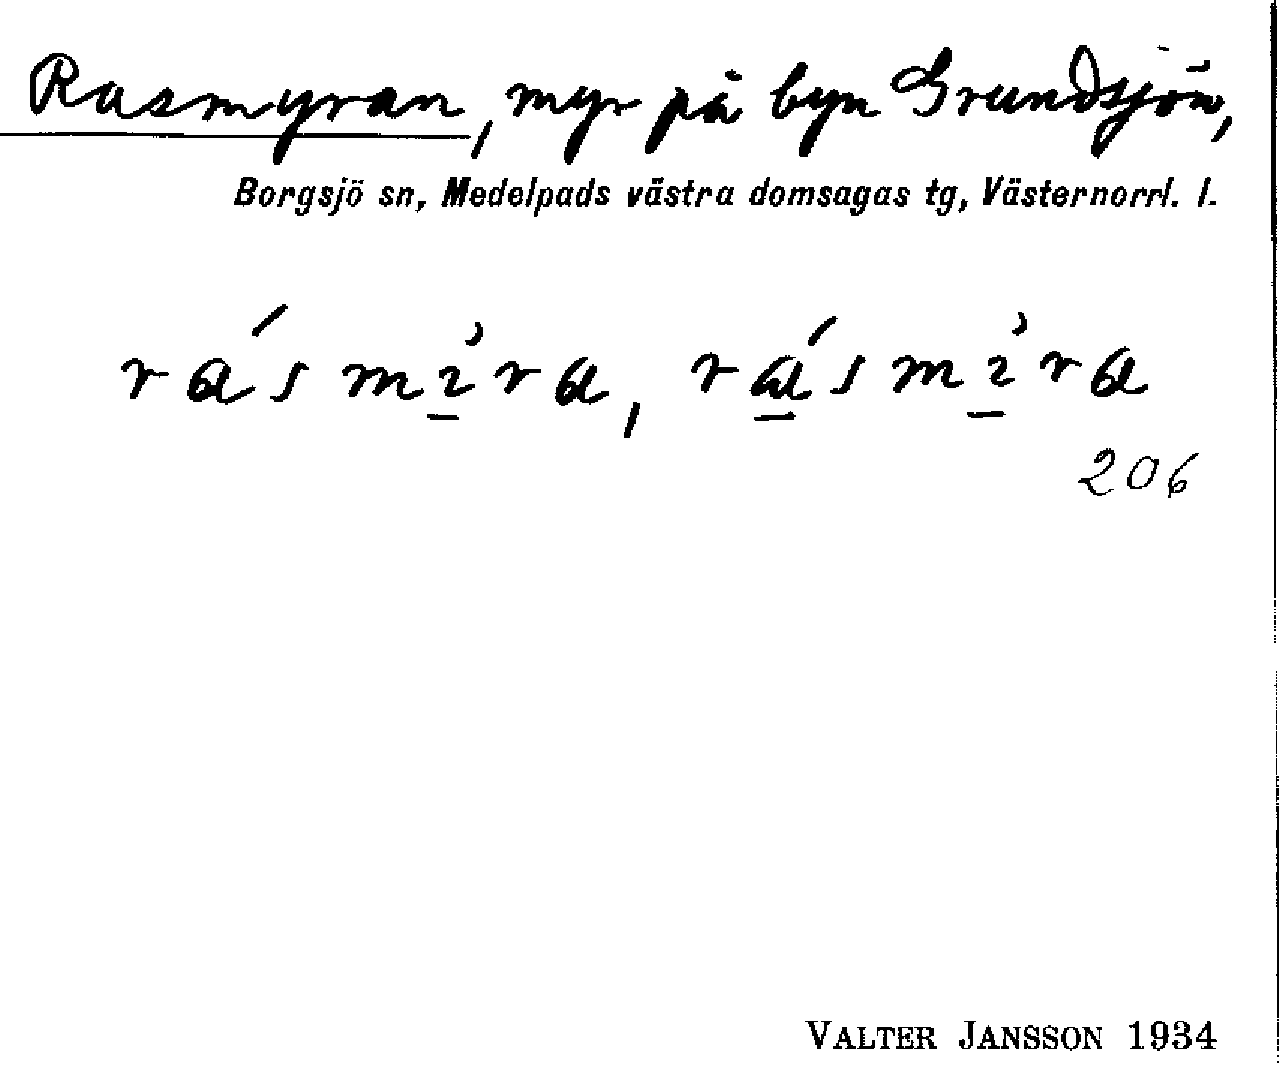 Rasmyran, myr på byn Grundsjön,
Borgsjö sn, Medelpads västra domsagas tg, Västernorrl. l.
rásmı̲̉ra, rá̲smı̲̉ra
206
VALTER JANSSON 1934